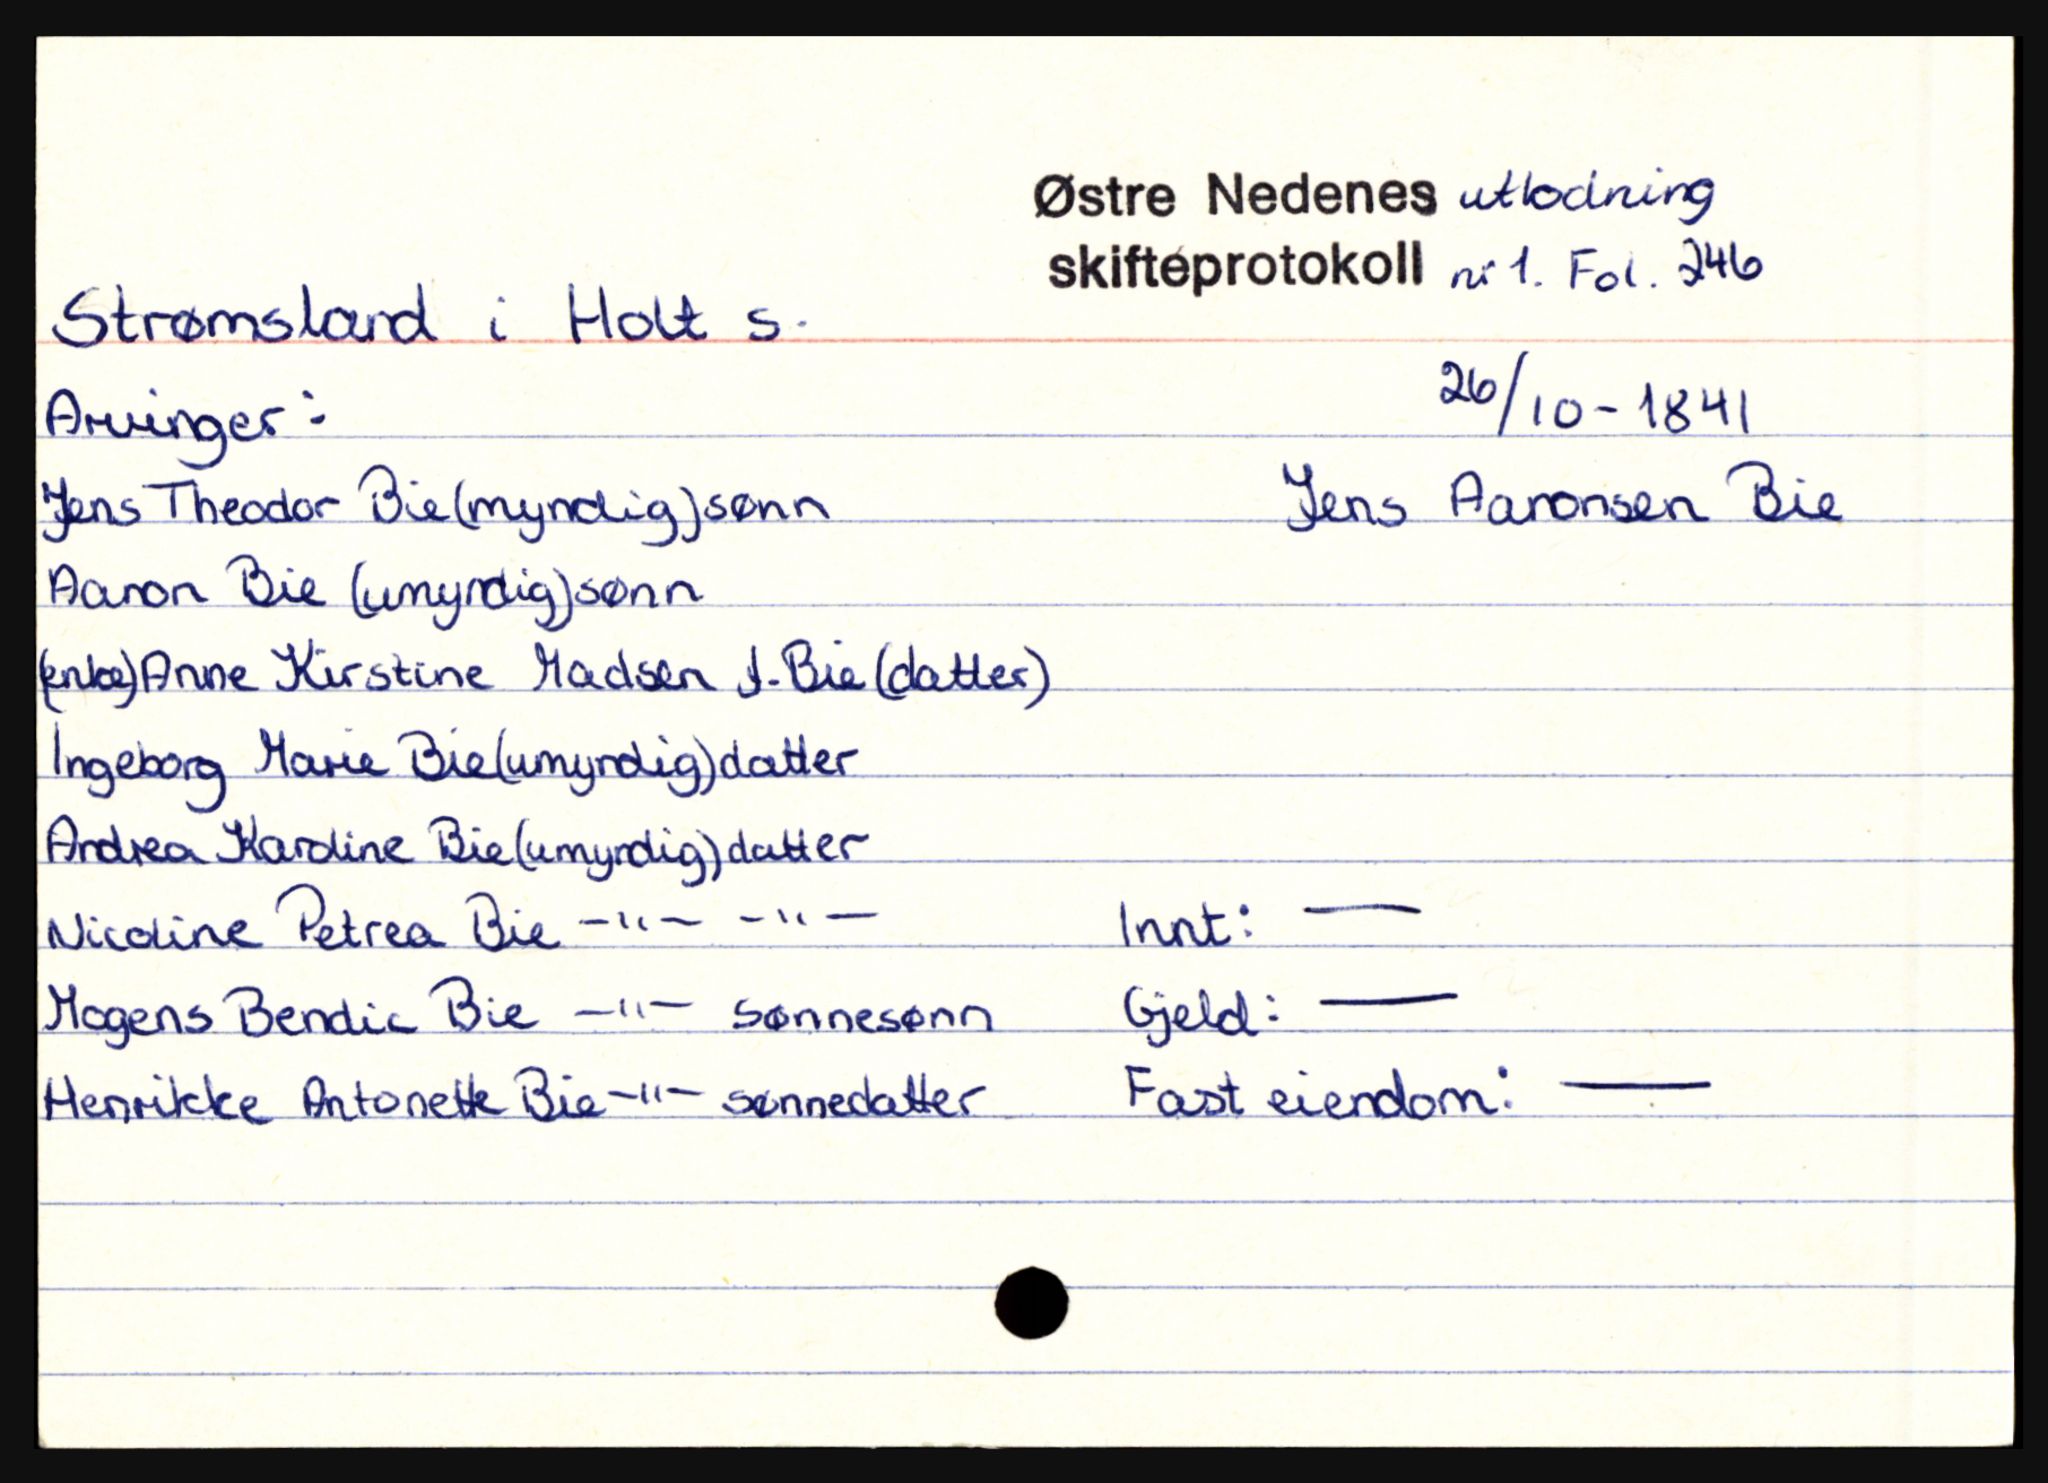 Østre Nedenes utlodning
skifteprotokoll nr 1. Fol. 246
Strømsland i Holt s.
Arvinger:
26/10-1841
Jens Theodor Bie (myndig) sønn
Jens Aaronsen Bie
Aaron Bie (umyndig) sønn
(enke) Anne Kirstine Madsen f. Bie (datter)
Ingeborg Marie Bie (umyndig) datter
Andrea Karoline Bie (umyndig) datter
Nicoline Petrea Bie -"- -"-
Innt: —
Mogens Bendic Bie -"- sønnesønn
Gjeld: —
Henrikke Antonette Bie -"- sønnedatter
Fast eiendom: —